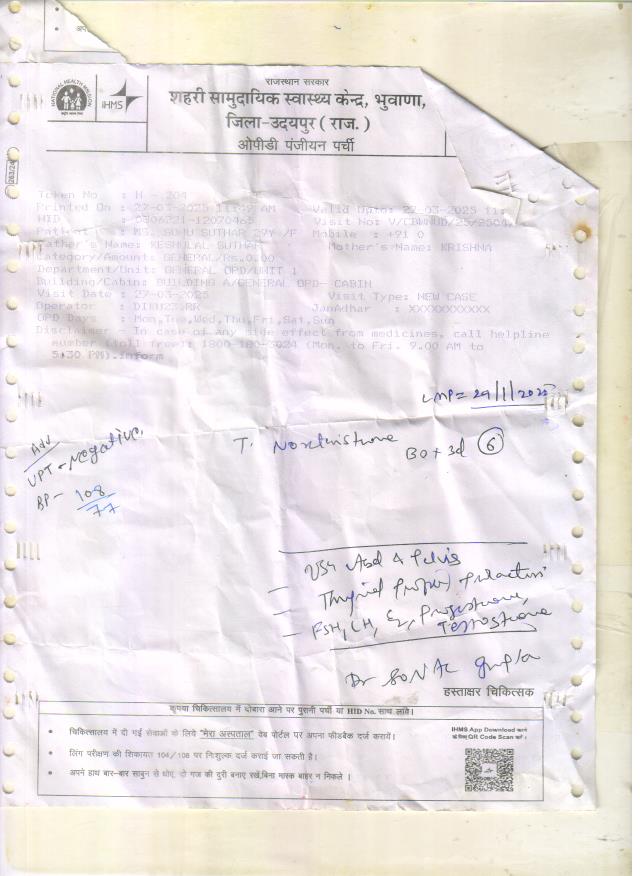 • अप
NATIONAL HEALTH MISSION
IHMS
राजस्थान सरकार
शहरी सामुदायिक स्वास्थ्य केन्द्र, भुवाणा,
जिला-उदयपुर ( राज. )
ओपीडी पंजीयन पर्ची
Token No : H - 204
Printed On : 27-03-2025 AM Valid Upto: 27-03-2025
HID : Visit No:
29Y /F Mobile : +91 0
Father's Name: KESHULAL SUTHAR Mother's Name: KRISHNA
Category/Amount: GENERAL/Rs.0.00
Department/Unit: GENERAL OPD/UNIT 1
Building/Cabin: BUILDING A/GENERAL OPD- CABIN
Visit Date : 27-03-2025 Visit Type: NEW CASE
Operator : JanAdhar : XXXXXXXXXXX
OPD Days : Mon,Tue,Wed,Thu,Fri,Sat,Sun
Disclaimer - In case of any side effect from medicines, call helpline
number (toll free): (Mon. to Fri. 9.00 AM to
5:30 PM).inform
LMP = 29/1/2025
Adv
UPT - Negative.
BP - 108/77
T. BD x 3d 6
- USG Abd & Pelvis
- Thyroid Profile, Prolactin
- FSH, LH, E2, Progesterone,
Testosterone
Dr SONAL Gupta
हस्ताक्षर चिकित्सक
कृपया चिकित्सालय में दोबारा आने पर पुरानी पर्ची या HID No. साथ लावे।
• चिकित्सालय में दी गई सेवाओं के लिये "मेरा अस्पताल" वेब पोर्टल पर अपना फीडबैक दर्ज करायें।
• लिंग परीक्षण की शिकायत 104/108 पर निःशुल्क दर्ज कराई जा सकती है।
• अपने हाथ बार-बार साबुन से धोए, दो गज की दुरी बनाए रखें,बिना मास्क बाहर न निकले ।
IHMS App Download करने
के लिए QR Code Scan करें।